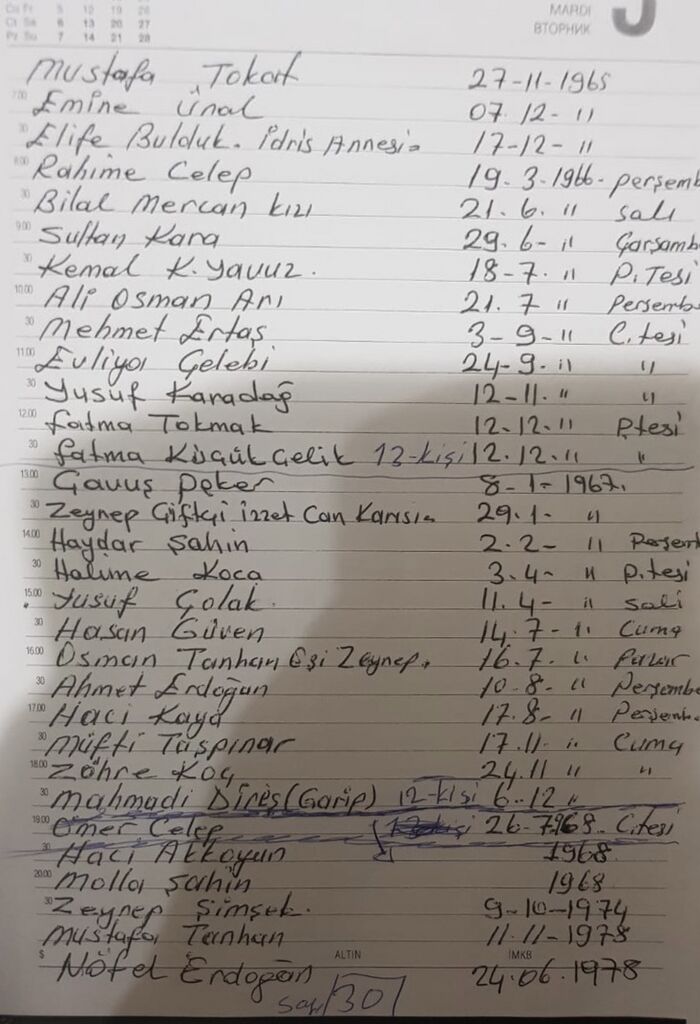 Cu Fr 5 12 19 26
Ct Sa 6 13 20 27
Pz Su 7 14 21 28
MARDI
ВТОРНИК
Mustafa Tokat 27-11-1965
7.00 Emine Ünal 07.12- "
30 Elife Bulduk. İdris Annesi- 17-12- "
8.00 Rahime Celep 19.3-1966- perşemb
30 Bilal mercan kızı 21.6. " salı
9.00 Sultan Kara 29.6- " Çarşamb
30 Kemal K.yavuz. 18-7. " P.Tesi
10.00 Ali Osman Arı 21.7 " Persemb
30 Mehmet Ertaş 3-9-" C.tesi
11.00 Evliya Çelebi 24-9- " "
30 Yusuf Karadağ 12-11- " "
12.00 fatma Tokmak 12.12- " P.tesi
30 fatma Küçük Çelik 13-kişi 12.12. " "
13.00 Çavuş peker 8-1-1967.
30 Zeynep Çiftçi izzet Can Karısı- 29.1- "
14.00 Haydar şahin 2.2- " Perşem
30 Halime Koca 3.4- " P.tesi
15.00 Yusuf Çolak. 11.4- " Sali
30 Hasan Güven 14.7- " Cuma
16.00 Osman Tanhan Eşi Zeynep. 16.7. " Pazar
30 Ahmet Erdoğan 10-8- " Perşembe
17.00 Haci Kaya 17.8- " Perşemb
30 Müfti Taşpınar 17.11- " Cuma
18.00 Zöhre Koç 24.11 " "
30 Mahmadi Direş (Garip) 12-kişi 6-12 "
19.00 Ömer Celep 26-7.968- C.tesi
30 Haci Akkoyun 1968
20.00 Molla şahin 1968
30 Zeynep Şimşek. 9-10-1974
Mustafa Tanhan 11-11-1978
$ ALTIN İMKB
Nöfel Erdoğan 24.06.1978
30